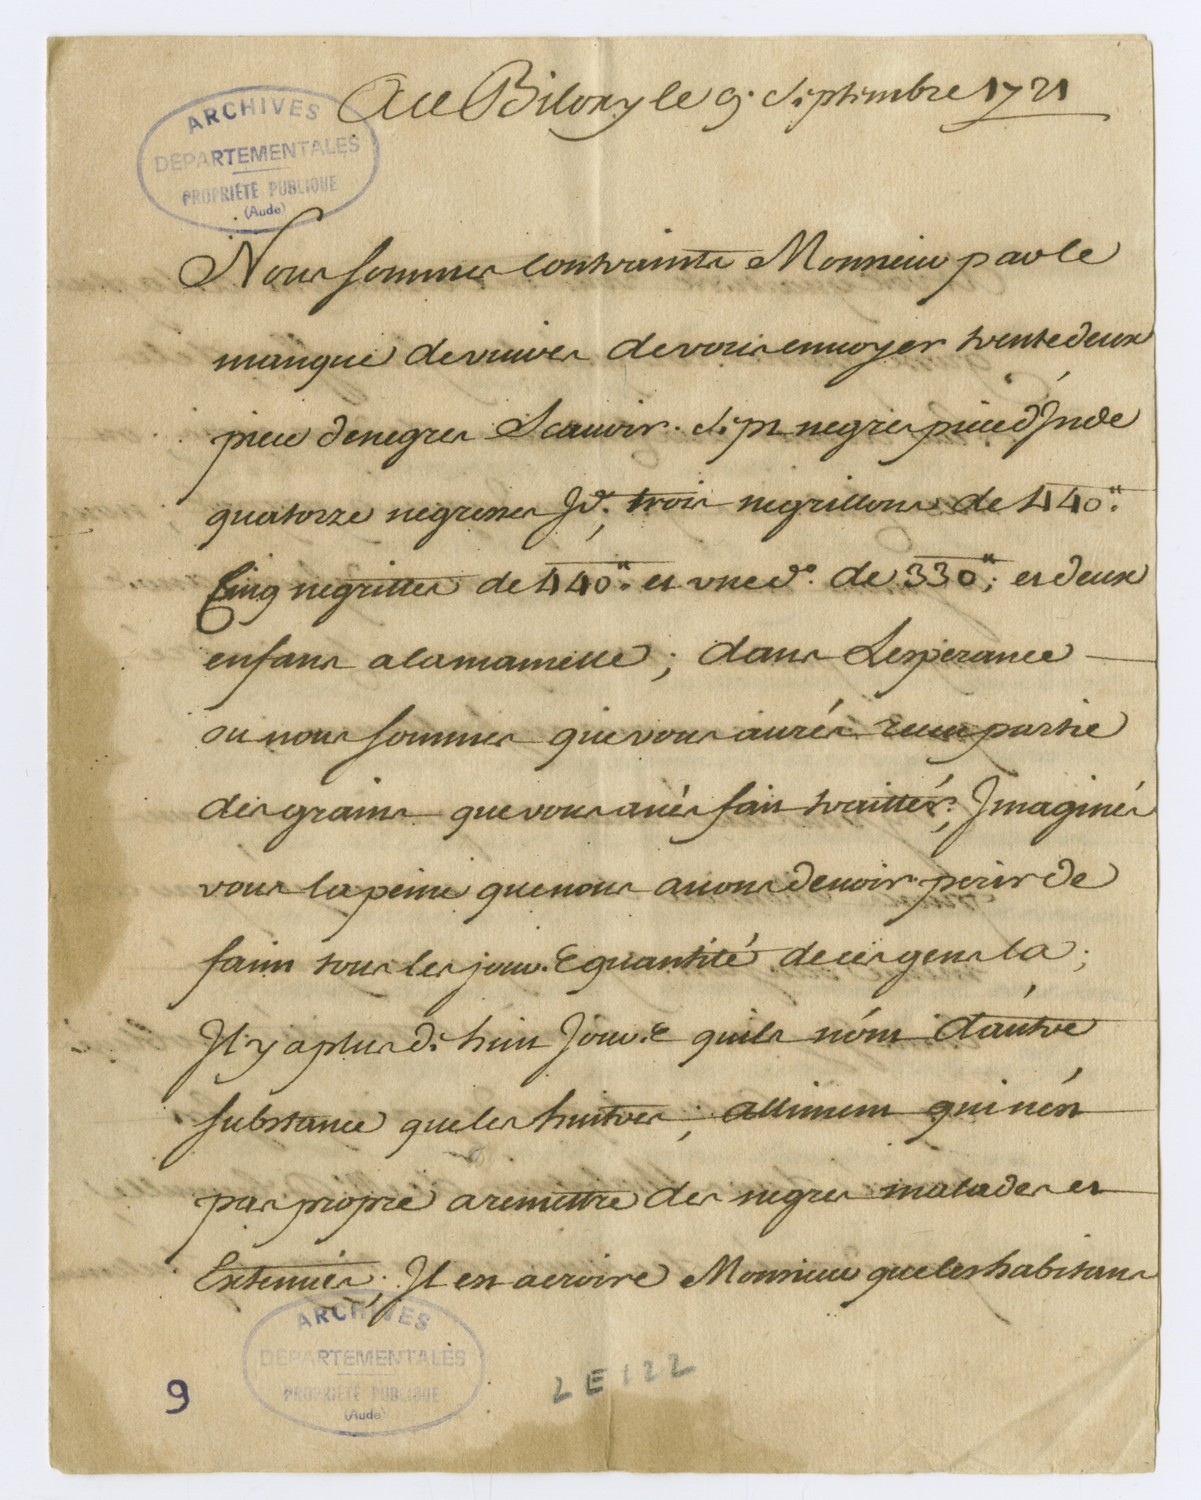 Au Biloxy le 9. Septembre 1721
ARCHIVES
DEPARTEMENTALES
PROPRIÉTÉ PUBLIQUE
(Aude)
Nous sommes contraints Monsieur par le
manque de vivres de vous envoyer trente deux
piece de negres Scauoir. Sept negres piece d'Inde
quatorze negresses Jd. trois negrillons de 440"
Cinq negrittes de 440". et une do. de 330"; et deux
enfans a la mamelle; dans Lesperance
ou nous sommes que vous aurés receu partie
des grains que vous aués fait traitter; Jmaginés
vous la peine que nous auons de uoir perir de
faim tous les jours quantité de ces gens la;
Jl y a plus de huit Jours quils nónt d'autre
substance que les huitres; alliment qui nést
pas propre a remettre des negres malades et
Extenués; Jl est a croire Monsieur que les habitans
ARCHIVES
DEPARTEMENTALES
PROPRIÉTÉ PUBLIQUE
(Aude)
9
2 E 122